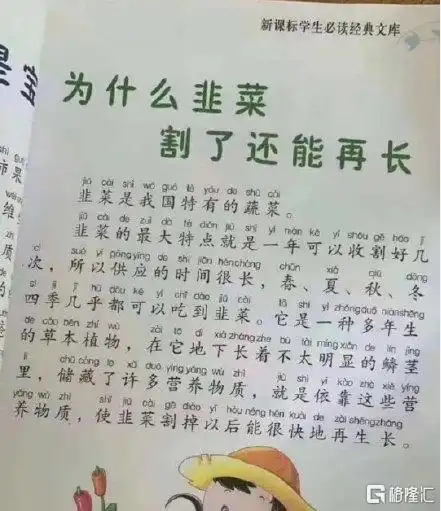 新课标学生必读经典文库
为什么韭菜
割了还能再长
jiǔ cài shì wǒ guó tè yǒu de shū cài
韭菜是我国特有的蔬菜。
jiǔ cài de zuì dà tè diǎn jiù shì yì nián kě yǐ shōu gē hǎo jǐ
韭菜的最大特点就是一年可以收割好几
cì suǒ yǐ gōng yìng de shí jiān hěn cháng chūn xià qiū dōng
次，所以供应的时间很长，春、夏、秋、冬
sì jì jī hū dōu kě yǐ chī dào jiǔ cài tā shì yì zhǒng duō nián shēng
四季几乎都可以吃到韭菜。它是一种多年生
de cǎo běn zhí wù zài tā dì xià zhǎng zhe bú tài míng xiǎn de lín jīng
的草本植物，在它地下长着不太明显的鳞茎
lǐ chǔ cáng le xǔ duō yíng yǎng wù zhì jiù shì yī kào zhè xiē yíng
里，储藏了许多营养物质，就是依靠这些营
yǎng wù zhì shǐ jiǔ cài gē diào yǐ hòu néng hěn kuài de zài shēng zhǎng
养物质，使韭菜割掉以后能很快地再生长。
格隆汇